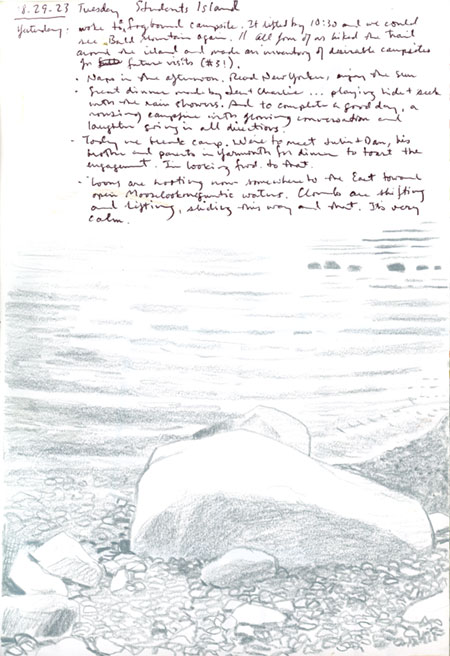 8.29.23 Tuesday Students Island
Yesterday. woke to a fogbound campsite. It lifted by 10:30 and we could
see Bald Mountain again. All four of us hiked the trail
around the island and made an inventory of desirable campsites
for future visits (#3!).
• Naps in the afternoon. Read New Yorker, enjoy the sun
• Great dinner made by Jen + Charlie ... playing hide + seek
with the rain showers. And to complete a good day, a
rousing campfire with glowing conversation and
laughter going in all directions.
• Today we break camp. We're to meet Julia + Dan, his
brother and parents in Yarmouth for dinner to toast the
engagement. I'm looking fwd. to that.
• Loons are hooting now somewhere to the East toward
open Mooselookmeguntic waters. Clouds are shifting
and lifting, sliding this way and that. It's very
calm.